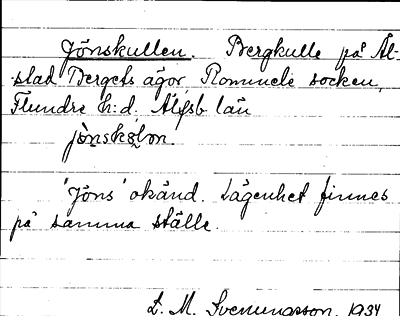 Jönskullen. Bergkulle på Äl-
stad Bergets ägor, Romnele socken,
Flundre h:d, Älfsb. län
jònskɷlɷn.
'Jöns' okänd. Lägenhet finnes
på samma ställe.
L. M. Svenungsson. 1934